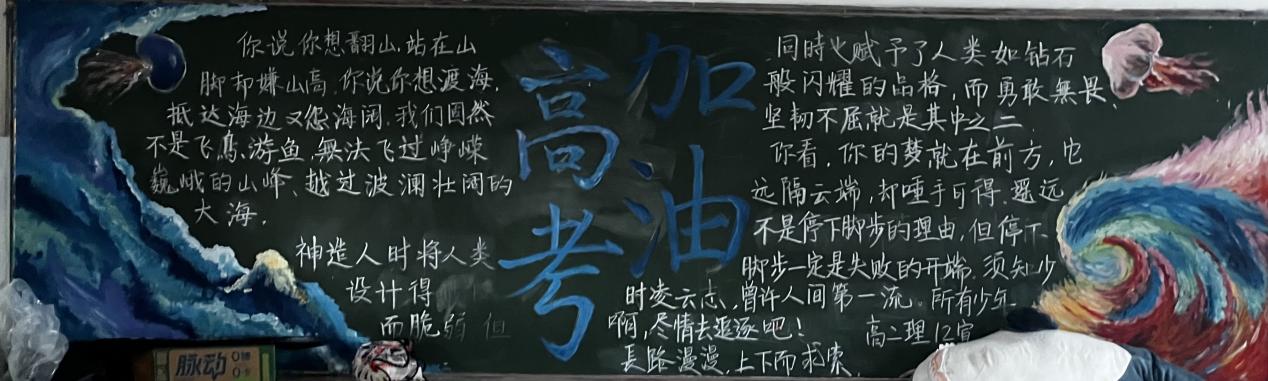 你说你想翻山,站在山
脚却嫌山高,你说你想渡海,
抵达海边又怨海阔,我们固然
不是飞鳥、游鱼,無法飞过峥嵘
巍峨的山峰、越过波澜壮阔的
大海。
神造人时将人类
设计得
而脆弱但
高考
加油
同時也赋予了人类如钻石
般闪耀的品格,而勇敢無畏、
坚韧不屈就是其中之二
你看,你的梦就在前方,它
远隔云端,却唾手可得.遥远
不是停下脚步的理由,但停下
脚步一定是失败的开端.须知少
时凌云志,曾许人间第一流。所有少年
啊,尽情去追逐吧!
長路漫漫,上下而求索.
高二理12宣
脉动